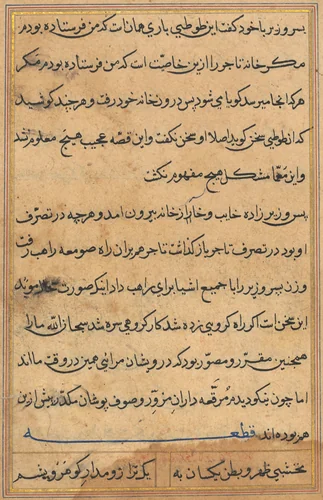 پس وزیر با خود گفت این طوطی باری همانست که من فرستاده بودم
مکر خانه تاجر را ازین خاصیت است که من فرستاده بودم منکر
هر که انجا میرسد کویا می شود پس درون خانه خود رفت و هر چند کوشید
که از طوطی سخن کوید اصلا او سخن نکفت و این قصه عجیب هیچ معلوم نشد
و این معما مشکل هیچ مفهوم نکشت
پس وزیرزاده خایب و خاسر از خانه بیرون امد و هر چه در تصرف
او بود در تصرف تاجر باز کذاشت تاجر همبران راه صومعه راهب رفت
وزن پسر وزیر را با جمیع اشیا برای راهب داد اینک صورت
این سخن است اکر راه کروسی زده شد کار کروهی سره شد سبحان الله ما را
همچنین مقرر و مصور بود که درویشان مرائی همین در وقت ما اند
اما چون بنکو دیدم مرقعه داران مزور و صوف پوشان مکدر پیش ازین
هم بوده اند قطعه
نخشبی ظهر و بطن یکسان به یک ترا زو مدار کو